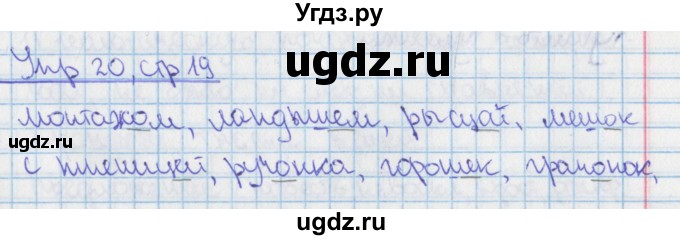 Угдз.ру
ugdz.ru
Упр 20, стр 19
монтажом, ландышем, рысцай, мешок
с пшеницей, ручонка, горошек, грачонок,
ugdz.ru